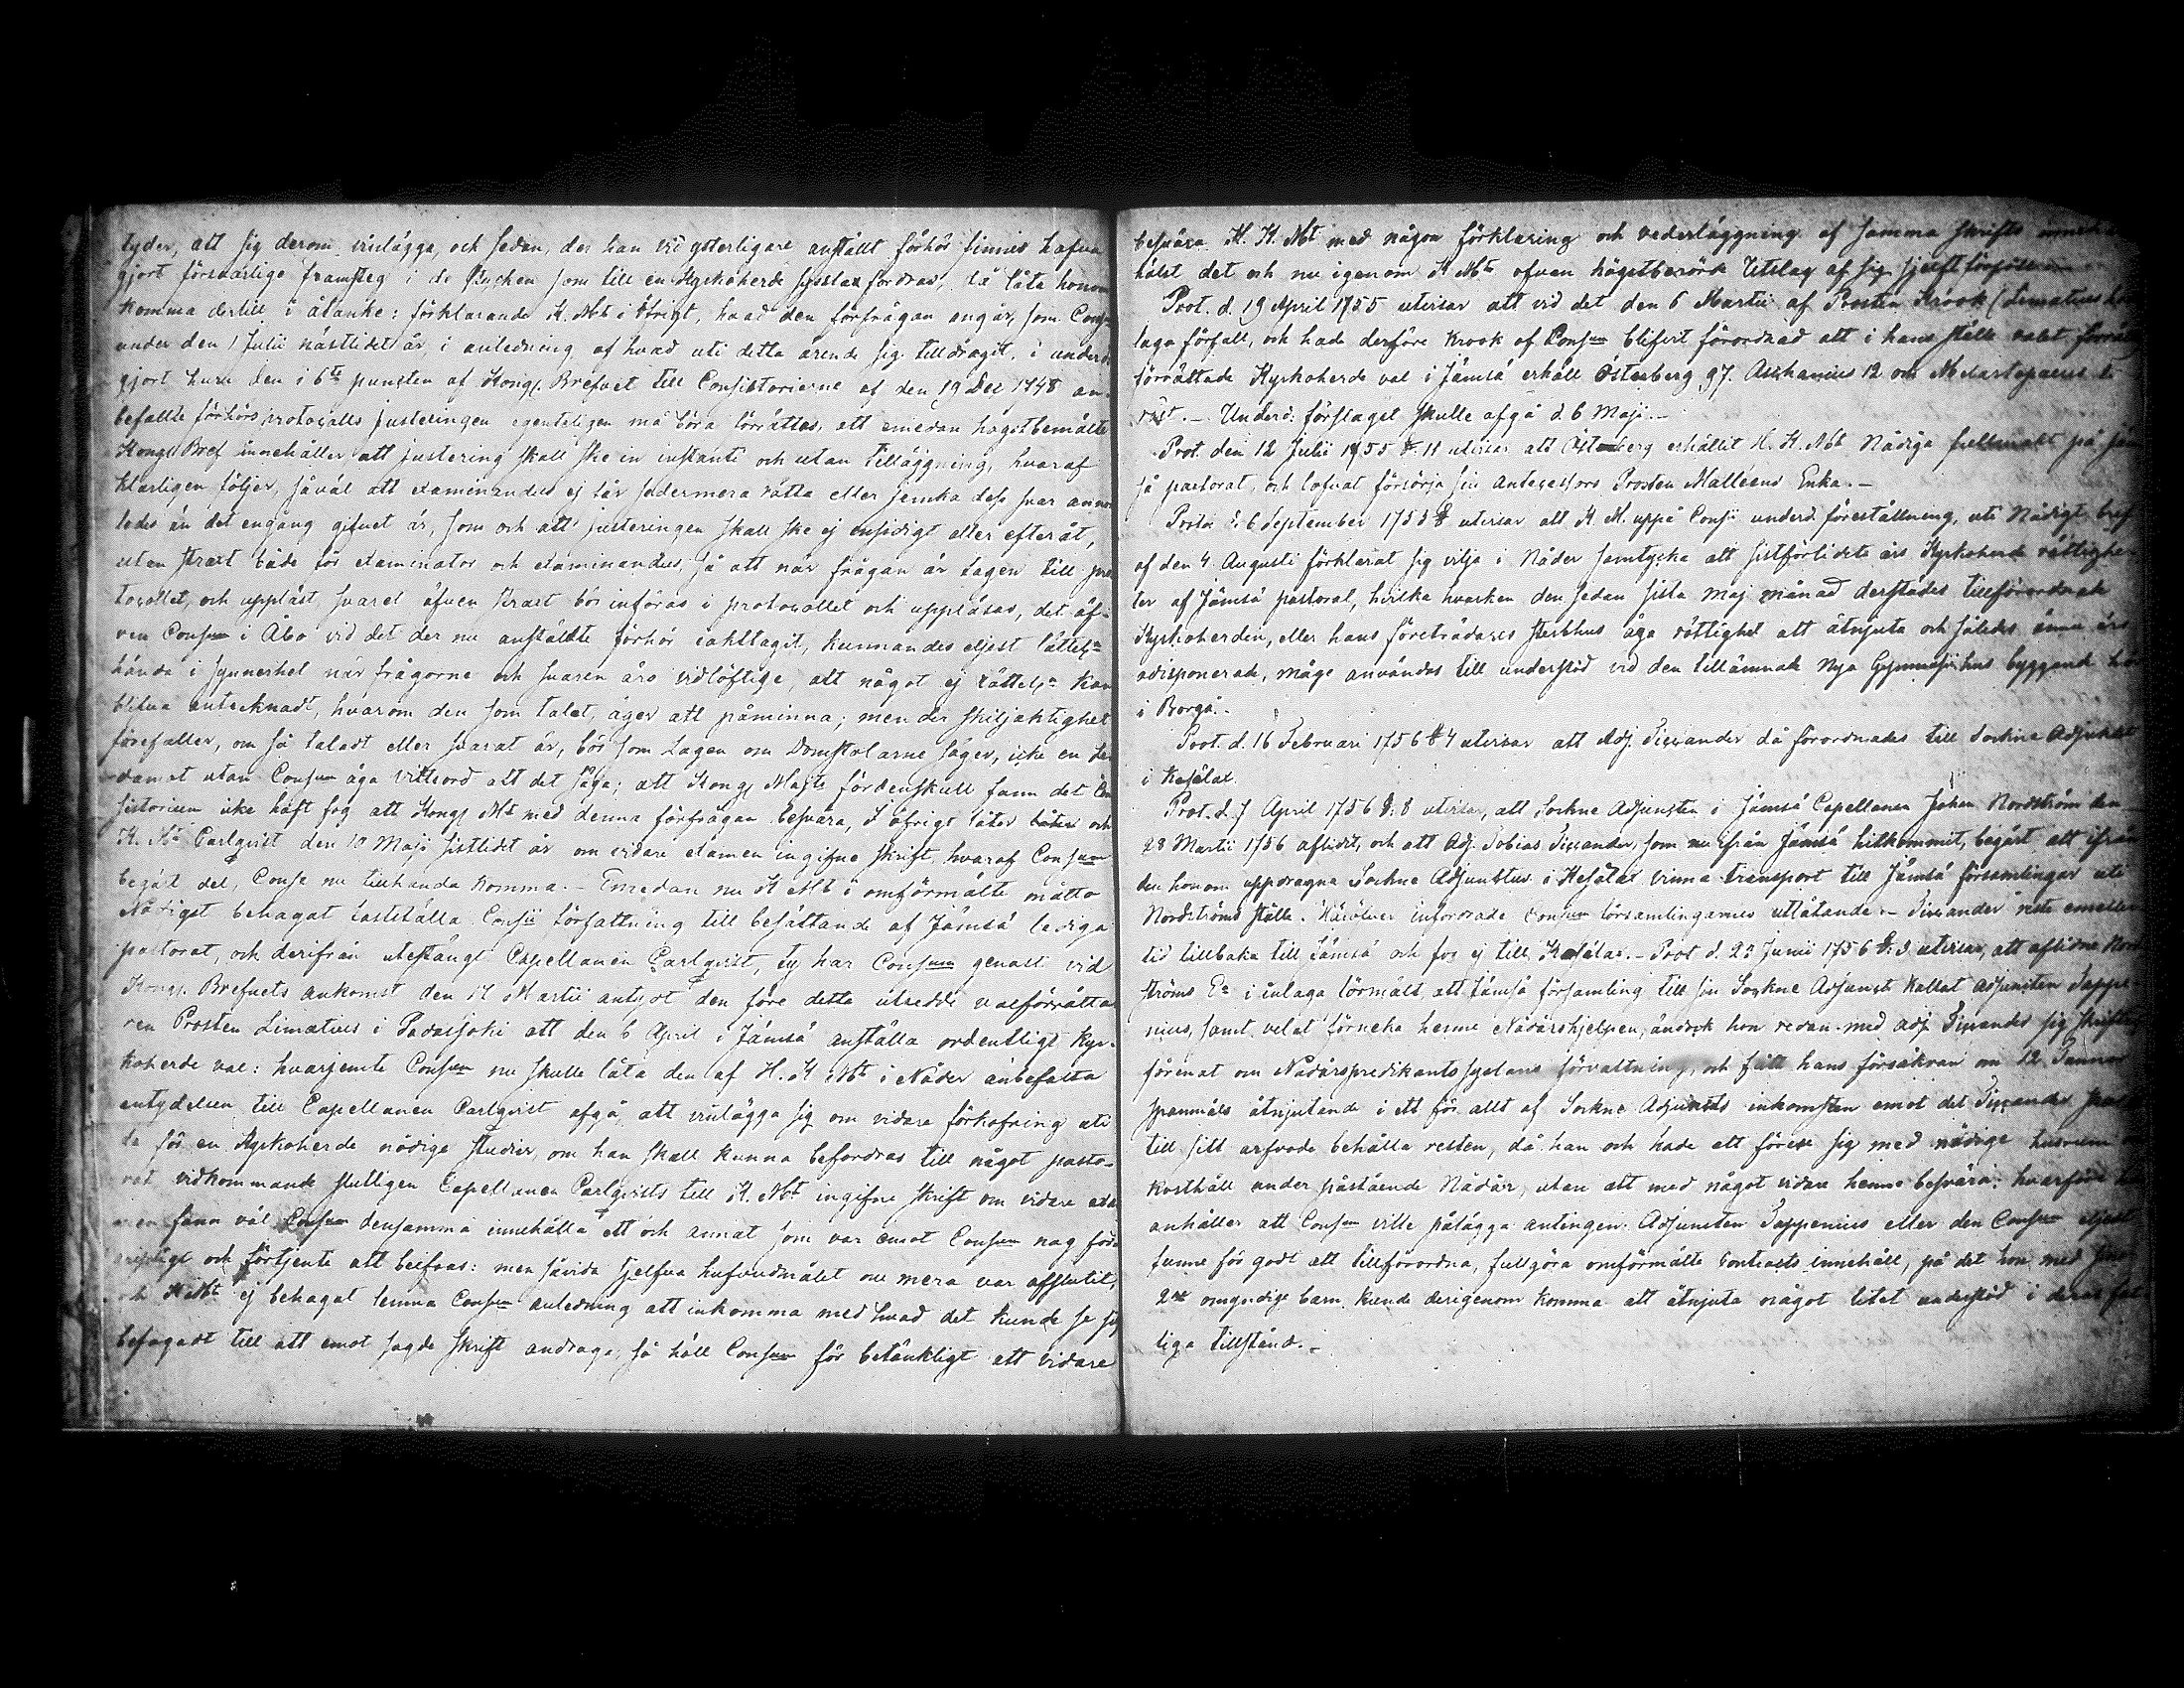 tyder, att sig derom vinlägga, och sedan, der han vid ytterligare anstäldt förhör finnes hafva
gjort försvarlige framsteg i de stycken som till en Kyrkoherde sysslas fordras, då låta honom
komma dertill i åtanke: förklarande K. Mt i öfrigt, hvad den förfrågan angår, som Consm
under den 1 Julii nästlidet år, i anledning af hvad uti detta ärende sig tilldragit, i underd.
gjort huru den i 6te puncten af Kongl. Brefvet till Consistorierne af den 19 Dec 1748 an-
befallte förhörsprotocolls justeringen egenteligen må böra förrättas, att emedan högstbemälte
Kongl Bref innehåller, att justering skall ske in instanti och utan tilläggning, hvaraf
klarligen följer, såväl att examinandus ej får sedermera rätta eller jemka dess svar annor
ledes än det engång gifvet är, som och att justeringen skall ske ej ensidigt eller efteråt,
utan straxt både för examinator och examinandus, så att när frågan är tagen till pro
tocollet, och uppläst, svaret äfven straxt bör införas i protocollet och uppläsas, det äf-
ven Consum i Åbo vid det der nu anstäldte förhör iakttagit, kunnandes eljest lätteln
hända i synnerhet när frågorne och svaren äro vidlöftige, att något ej rätteln kan
blifva antecknadt, hvarom den som talat, äger att påminna; men der skiljaktighet
förefaller, om så taladt eller svarat är, bör som Lagen om Domstolarne säger, icke en le
damot utan Consum äga vittsord att det säga; att Kongl Majts fördenskull fann det Con
sistorium icke haft fog att Kongl Mt med denna förfrågan besvära, I öfrigt låter och
K. Mt Carlqvist den 10 Maji sistlidet år om vidare examen ingifne skrift, hvaraf Consum
begärt del, Conse nu tillhanda komma. - Emedan nu K Mt i omförmälte måtto
Nådigst behagat fastställa Consii författning till besättande af Jämsä lediga
pastorat, och derifrån utestängt Capellanen Carlqvist, ty har Consum genast vid
Kongl. Brefvets ankomst den 17 Martii antydt den före detta utsedde valförrätta
ren Prosten Limatius i Padasjoki att den 6 April i Jämsä anställa ordentligt Kyr-
koherde val: hvarjemte Consum nu skulle låta den af H. K Mt i Nåder anbefalta
antydelsen till Capellanen Carlqvist afgå, att vinlägga sig om vidare förkofring uti
de för en Kyrkoherde nödige studier, om han skall kunna befordras till något pasto-
rat vidkommande slutligen Capellanen Carlqvists till K. Mt ingifne skrift om vidare exa
men fann väl Consum densamma innehålla ett och annat som var emot Consum nog förd
och förtjente att beifras: men såvida sjelfva hufvudmålet nu mera var afslutit,
och K Mt ej behagat lemna Consum anledning att inkomma med hvad det kunde se sig
befogadt till att emot sagde skrift andraga, så höll Consum för betänkligt att vidare
besvära H. K. Mt med någon förklaring och vederläggning af samma skrifts
hälst det och nu igenom K Mts ofvan högstberörde Utslag af sig sjelft förfölle
Prot. d. 19 April 1755 utvisar att vid det den 6 Martii af Prosten Krook (Limatius had
laga förfall, och hade derföre Krook af Consum blifvit förordnad att i hans ställe valet förrätt
förrättade Kyrkoherde val i Jämsä erhöll Österberg 97. Aschanius 12 och Melartopaeus
röst. - Underd: förslaget skulle afgå d. 6 Maji.-
Prot. den 12 Julii 1755 § 11 utvisar att Österberg erhållit H. K. Mts Nådiga fullmakt på Jäm
sä pastorat, och lofvat försörja sin antecessors Prosten Malléens Enka.-
Prot. d. 6 September 1755 § utvisar att K. M. uppå Consii underd. föreställning, uti Nådigt bref
af den 4 Augusti förklarat sig vilja i Nåder samtycka att sistförlidets års Kyrkoherde rättighe-
ter af Jämsä pastorat, hvilka hvarken den sedan sista Maj månad derstädes tillförordnade
Kyrkoherden, eller hans företrädares sterbhus äga rättighet att åtnjuta och således ännu äro
odisponerade, måge användas till understöd vid den tillämnade Nya Gymnasii hus byggnad här
i Borgå.-
Prot. d. 16 Februari 1756 § 4 utvisar att Adj. Tissander då förordnades till Sockne Adjunkt
i Kesälax.
Prot. d. 7 April 1756 §: 8 utvisar, att Sockne Adjuncten i Jämsä Capellanen Johan Nordström den
28 Martii 1756 aflidit, och att Adj. Tobias Tissander, som nu ifrån Jämsä hitkommit, begärt att ifrån
den honom uppdragna Sockne Adjunktur i Kesälax vinna transport till Jämsä församlingar uti
Nordströms ställe. Häröfver infordrade Consum församlingarnes utlåtande. - Tissander reste emeller
tid tillbaka till Jämsä och for ej till Kesälax. - Prot d. 2n Junii 1756 §: 3 utvisar, att aflidne Nord
ströms En i inlaga förmält, att Jämsä församling till sin Sockne Adjunct kallat adjuncten Tappe
nius, samt velat förneka henne Nådårshjelpen, ändock hon redan med adj. Tissander sig skrift
förenat om Nådårspredikants sysslans förvaltning, och fått hans försäkran om 12 Tunnor
spannmåls åtnjutande i ett för allt af Sockne Adjuncts inkomsten emot det Tissander
till sitt arfvode behålla resten, då han och hade att förese sig med nödige husrum
kosthåll under påstående Nådår, utan att med något vidare henne besvära: hvarföre
anhåller att Consum ville pålägga antingen Adjuncten Tappenius eller den Consum eljest
funne för godt att tillförordna, fullgöra omförmälte contracts innehåll, på det hon med
2ne omyndige barn kunde derigenom komma att åtnjuta något litet understöd i deras fat
tiga tillstånd.-